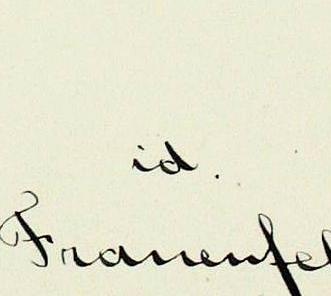 id.
Frauenfel